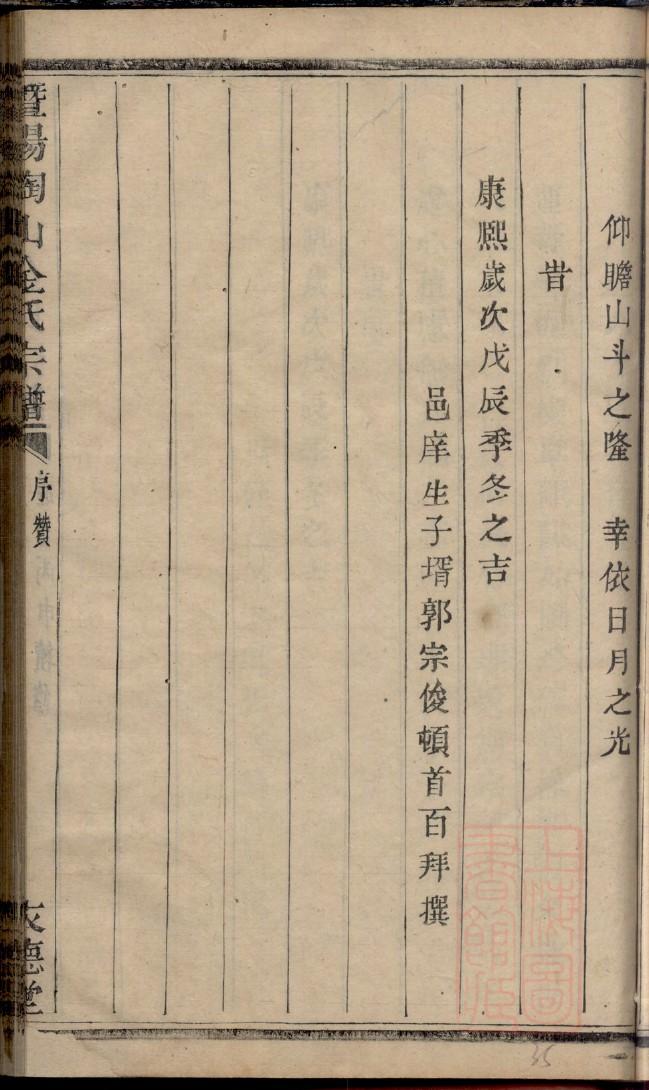 仰瞻山斗之隆　幸依日月之光
旹
康熙歲次戊辰季冬之吉
邑庠生子壻郭宗俊頓首百拜撰
暨陽陶山金氏宗譜
序贊
友德堂
上海圖書館藏
35